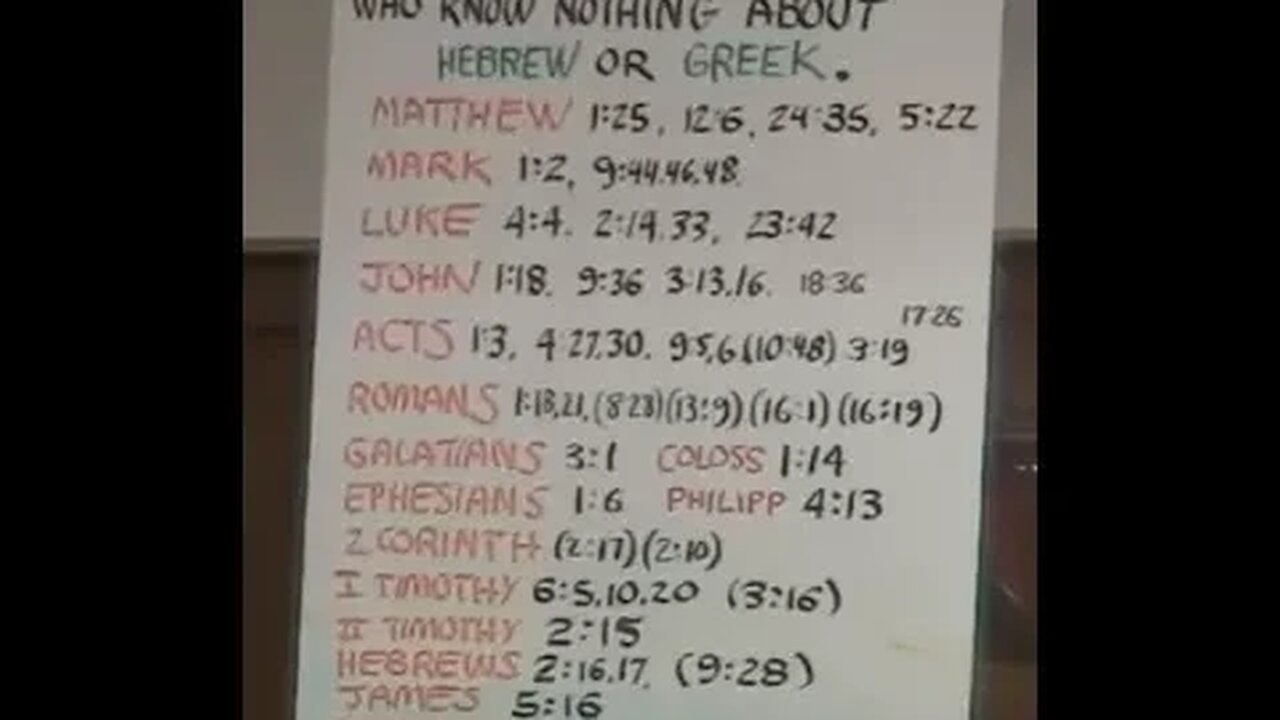 WHO KNOW NOTHING ABOUT
HEBREW OR GREEK.
MATTHEW 1:25, 12:6, 24:35, 5:22
MARK 1:2, 9:44.46.48.
LUKE 4:4. 2:14.33, 23:42
JOHN 1:18. 9:36 3:13.16. 18:36
17:26
ACTS 1:3, 4:27.30. 9:5,6 (10:48) 3:19
ROMANS 1:18,21, (8:28) (13:9) (16:1) (16:19)
GALATIANS 3:1 COLOSS 1:14
EPHESIANS 1:6 PHILIPP 4:13
2 CORINTH (2:17) (2:10)
I TIMOTHY 6:5.10.20 (3:16)
II TIMOTHY 2:15
HEBREWS 2:16.17. (9:28)
JAMES 5:16